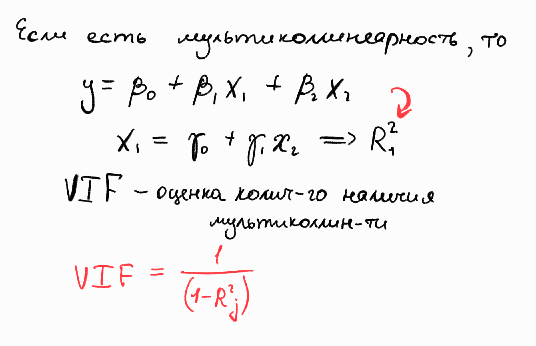 Если есть мультиколлинеарность, то
y = β₀ + β₁ x₁ + β₂ x₂
x₁ = γ₀ + γ₁ x₂ ⟹ R₁²
VIF – оценка колич-го наличия
мультиколлин-ти
VIF = 1 / (1-R²ⱼ)